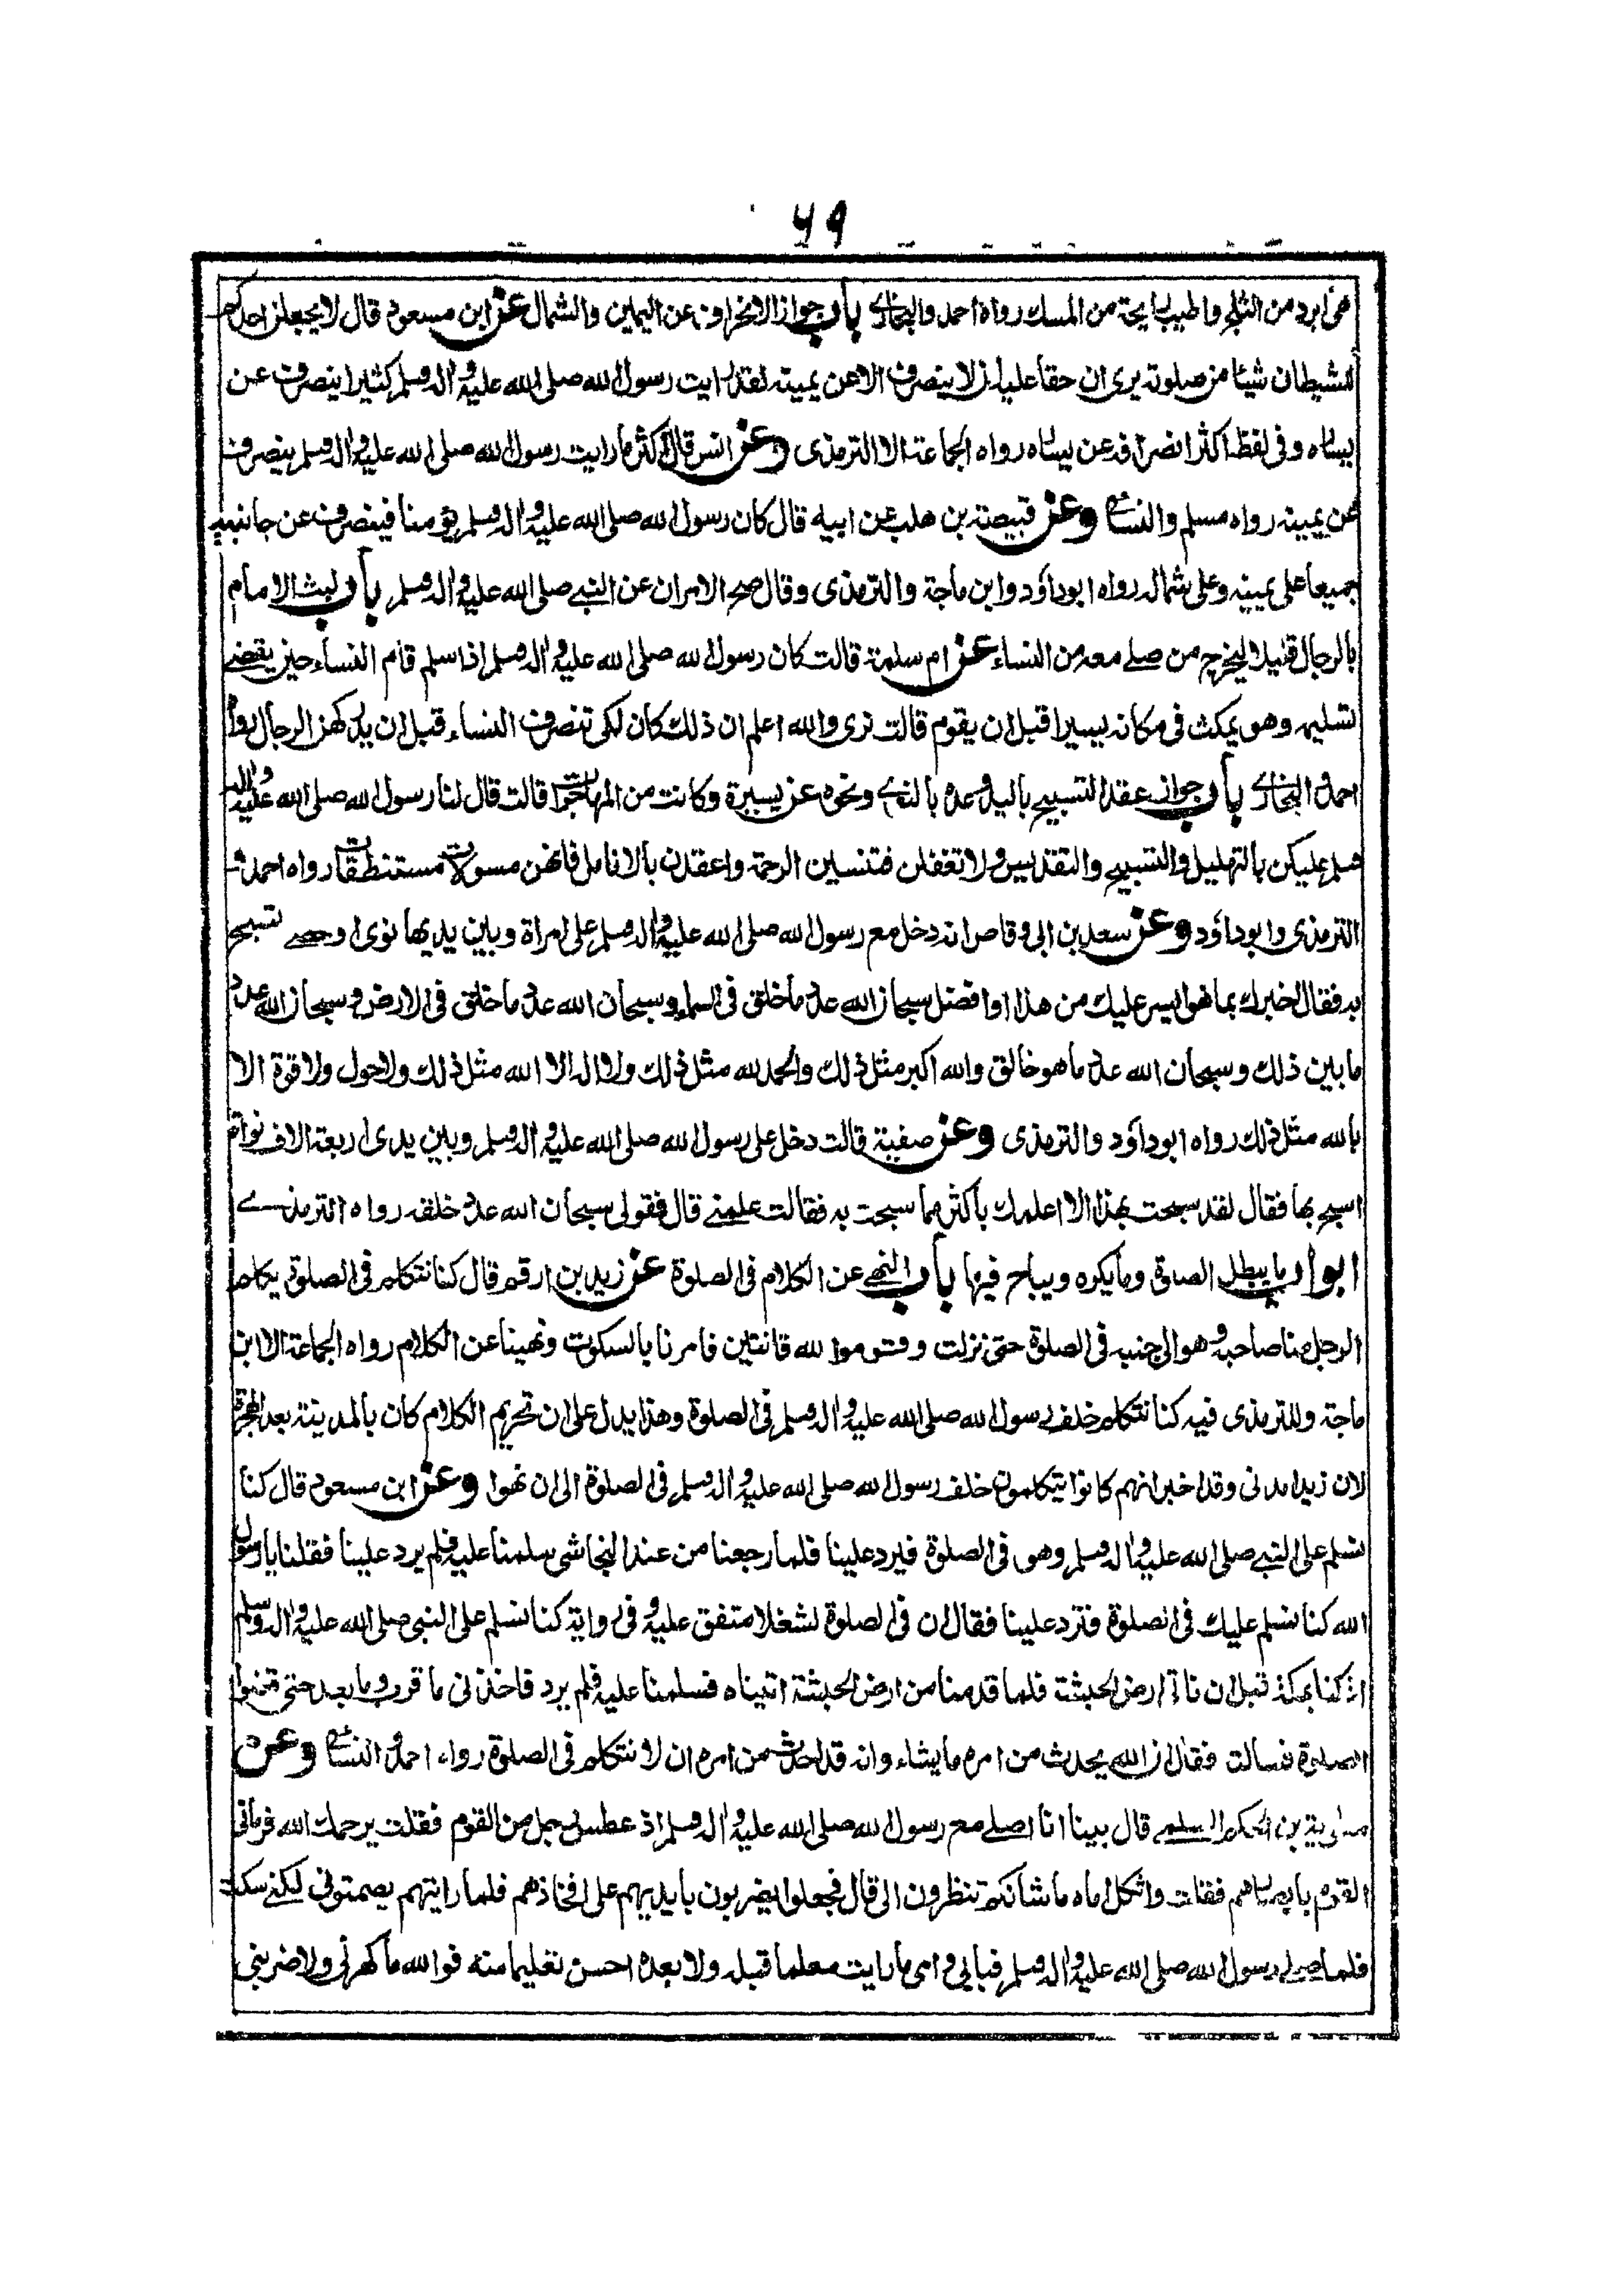 ٦٩
هى ابرد من الثلج واطيب رايحة من المسك رواه احمد والبخارى باب جواز الانحراف عن اليمين والشمال عن ابن مسعود قال لا يجعلن احدكم
للشيطان شيئا من صلوته يرى ان حقا عليه ان لا ينصرف الا عن يمينه لقد رايت رسول الله صلى الله عليه واله وسلم كثيرا ينصرف عن
يساره وفى لفظ اكثر انصرافه عن يساره رواه الجماعة الا الترمذى وعن انس قال اكثر ما رايت رسول الله صلى الله عليه واله وسلم ينصرف
عن يمينه رواه مسلم والنسائى وعن قبيصة بن هلب عن ابيه قال كان رسول الله صلى الله عليه واله وسلم يؤمنا فينصرف عن جانبيه
جميعا على يمينه وعلى شماله رواه ابوداؤد وابن ماجة والترمذى وقال صح الامران عن النبى صلى الله عليه واله وسلم باب لبث الامام
بالرجال قليلا ليخرج من صلى معه من النساء عن ام سلمة قالت كان رسول الله صلى الله عليه واله وسلم اذا سلم قام النساء حين يقضى
تسليمه وهو يمكث فى مكانه يسيرا قبل ان يقوم قالت نرى والله اعلم ان ذلك كان لكى تنصرف النساء قبل ان يدركهن الرجال رواه
احمد والبخارى باب جواز عقد التسبيح باليد وعده بالنوى ونحوه عن يسيرة وكانت من المهاجرات قالت قال لنا رسول الله صلى الله عليه واله
وسلم عليكن بالتهليل والتسبيح والتقديس ولا تغفلن فتنسين الرحمة واعقدن بالانامل فانهن مسولات مستنطقات رواه احمد و
الترمذى وابوداؤد وعن سعد بن ابى وقاص انه دخل مع رسول الله صلى الله عليه واله وسلم على امراة وبين يديها نوى او حصى تسبح
به فقال اخبرك بما هو ايسر عليك من هذا او افضل سبحان الله عدد ما خلق فى السماء وسبحان الله عدد ما خلق فى الارض وسبحان الله عدد
ما بين ذلك وسبحان الله عدد ما هو خالق والله اكبر مثل ذلك والحمد لله مثل ذلك ولا اله الا الله مثل ذلك ولا حول ولا قوة الا
بالله مثل ذلك رواه ابوداؤد والترمذى وعن صفية قالت دخل على رسول الله صلى الله عليه واله وسلم وبين يدى اربعة الاف نواة
اسبح بها فقال لقد سبحت بهذا الا اعلمك باكثر مما سبحت به فقالت علمنى قال فقولى سبحان الله عدد خلقه رواه الترمذى
ابواب ما يبطل الصلوة وما يكره ويباح فيها باب النهى عن الكلام فى الصلوة عن زيد بن ارقم قال كنا نتكلم فى الصلوة يكلم
الرجل منا صاحبه وهو الى جنبه فى الصلوة حتى نزلت وقوموا لله قانتين فامرنا بالسكوت ونهينا عن الكلام رواه الجماعة الا ابن
ماجة وللترمذى فيه كنا نتكلم خلف رسول الله صلى الله عليه واله وسلم فى الصلوة وهذا يدل على ان تحريم الكلام كان بالمدينة بعد الهجرة
لان زيدا مدنى وقد اخبر انهم كانوا يتكلمون خلف رسول الله صلى الله عليه واله وسلم فى الصلوة الى ان نهوا وعن ابن مسعود قال كنا
نسلم على النبى صلى الله عليه واله وسلم وهو فى الصلوة فيرد علينا فلما رجعنا من عند النجاشى سلمنا عليه فلم يرد علينا فقلنا يا رسول
الله كنا نسلم عليك فى الصلوة فترد علينا فقال ان فى الصلوة لشغلا متفق عليه وفى رواية كنا نسلم على النبى صلى الله عليه واله وسلم
اذ كنا بمكة قبل ان ناتى ارض الحبشة فلما قدمنا من ارض الحبشة اتيناه فسلمنا عليه فلم يرد فاخذنى ما قرب وما بعد حتى قضوا
الصلوة فسالت فقال ان الله يحدث من امره ما يشاء وانه قد احدث من امره ان لا نتكلم فى الصلوة رواه احمد والنسائى وعن
معاوية بن الحكم السلمى قال بينا انا اصلى مع رسول الله صلى الله عليه واله وسلم اذ عطس رجل من القوم فقلت يرحمك الله فرمانى
القوم بابصارهم فقلت واثكل اماه ما شانكم تنظرون الى قال فجعلوا يضربون بايديهم على افخاذهم فلما رايتهم يصمتونى لكنى سكت
فلما صلى رسول الله صلى الله عليه واله وسلم فبابى وامى ما رايت معلما قبله ولا بعده احسن تعليما منه فوالله ما كهرنى ولا ضربنى